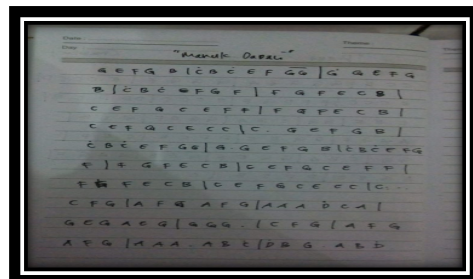 "Manuk Dadali"
G E F G B | Ċ B Ċ E F G G | G G E F G
B | Ċ B Ċ E F G F | F G F E C B |
C E F G C E F F | F G F E C B |
C E F G C E C C | C . G E F G B |
Ċ B Ċ E F G G | G G E F G B | Ċ B Ċ E F G
F | F G F E C B | C E F G C E F F |
F G F E C B | C E F G C E C C | C . . .
C F G | A F G A F G | A A A Ḋ C A |
G E G A C G | G G G . | C F G | A F G
A F G | A A A . A B Ċ | D B G A B Ḋ